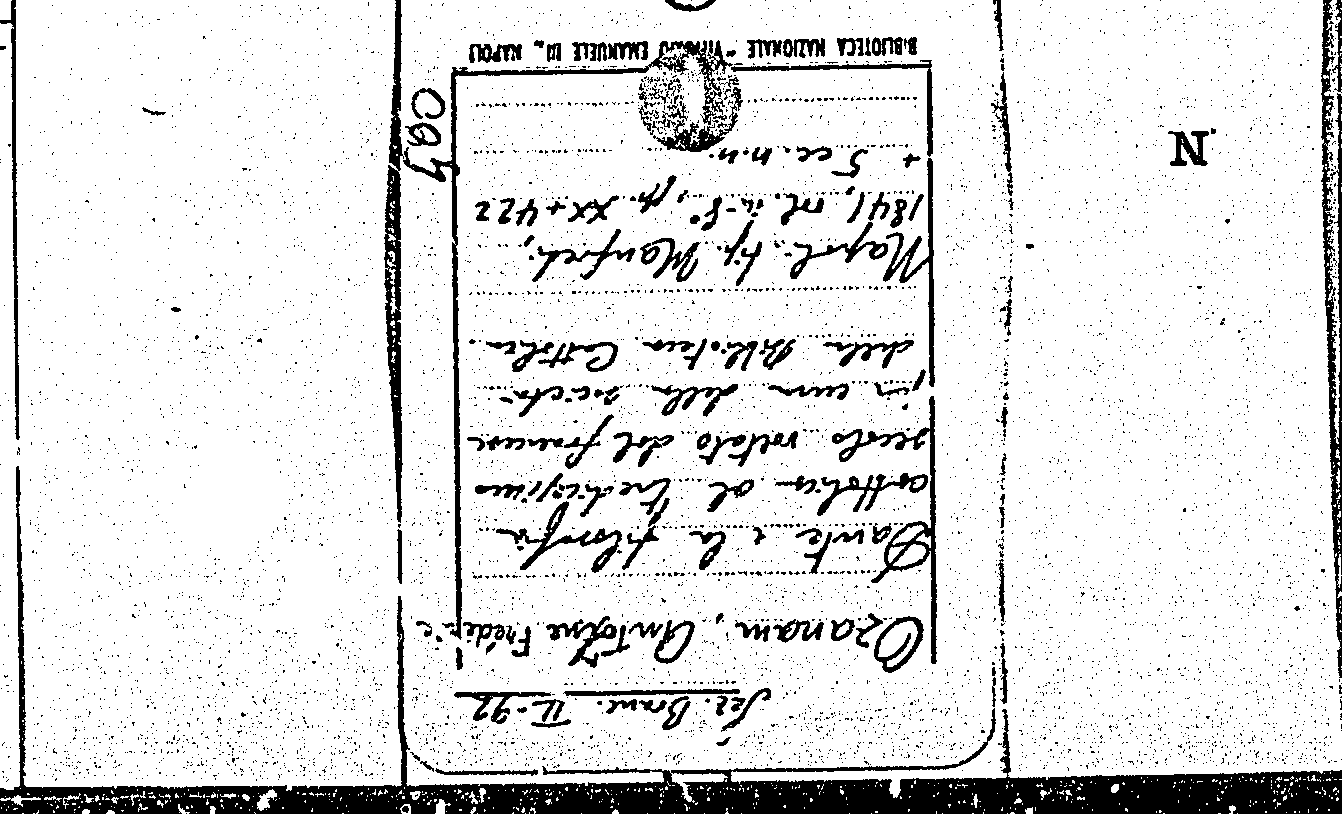 Sez. Branc. II-92
Ozanam, Antoine Frédéric
Dante e la filosofia
cattolica al tredicesimo
secolo voltato dal francese
in cura della società
della Biblioteca Cattolica.
Napoli. tip. Manfredi,
1841, vol. in-8°, pp. XX + 422
+ 5 cc. n.n.
BIBLIOTECA NAZIONALE "VITTORIO EMANUELE III" NAPOLI
N